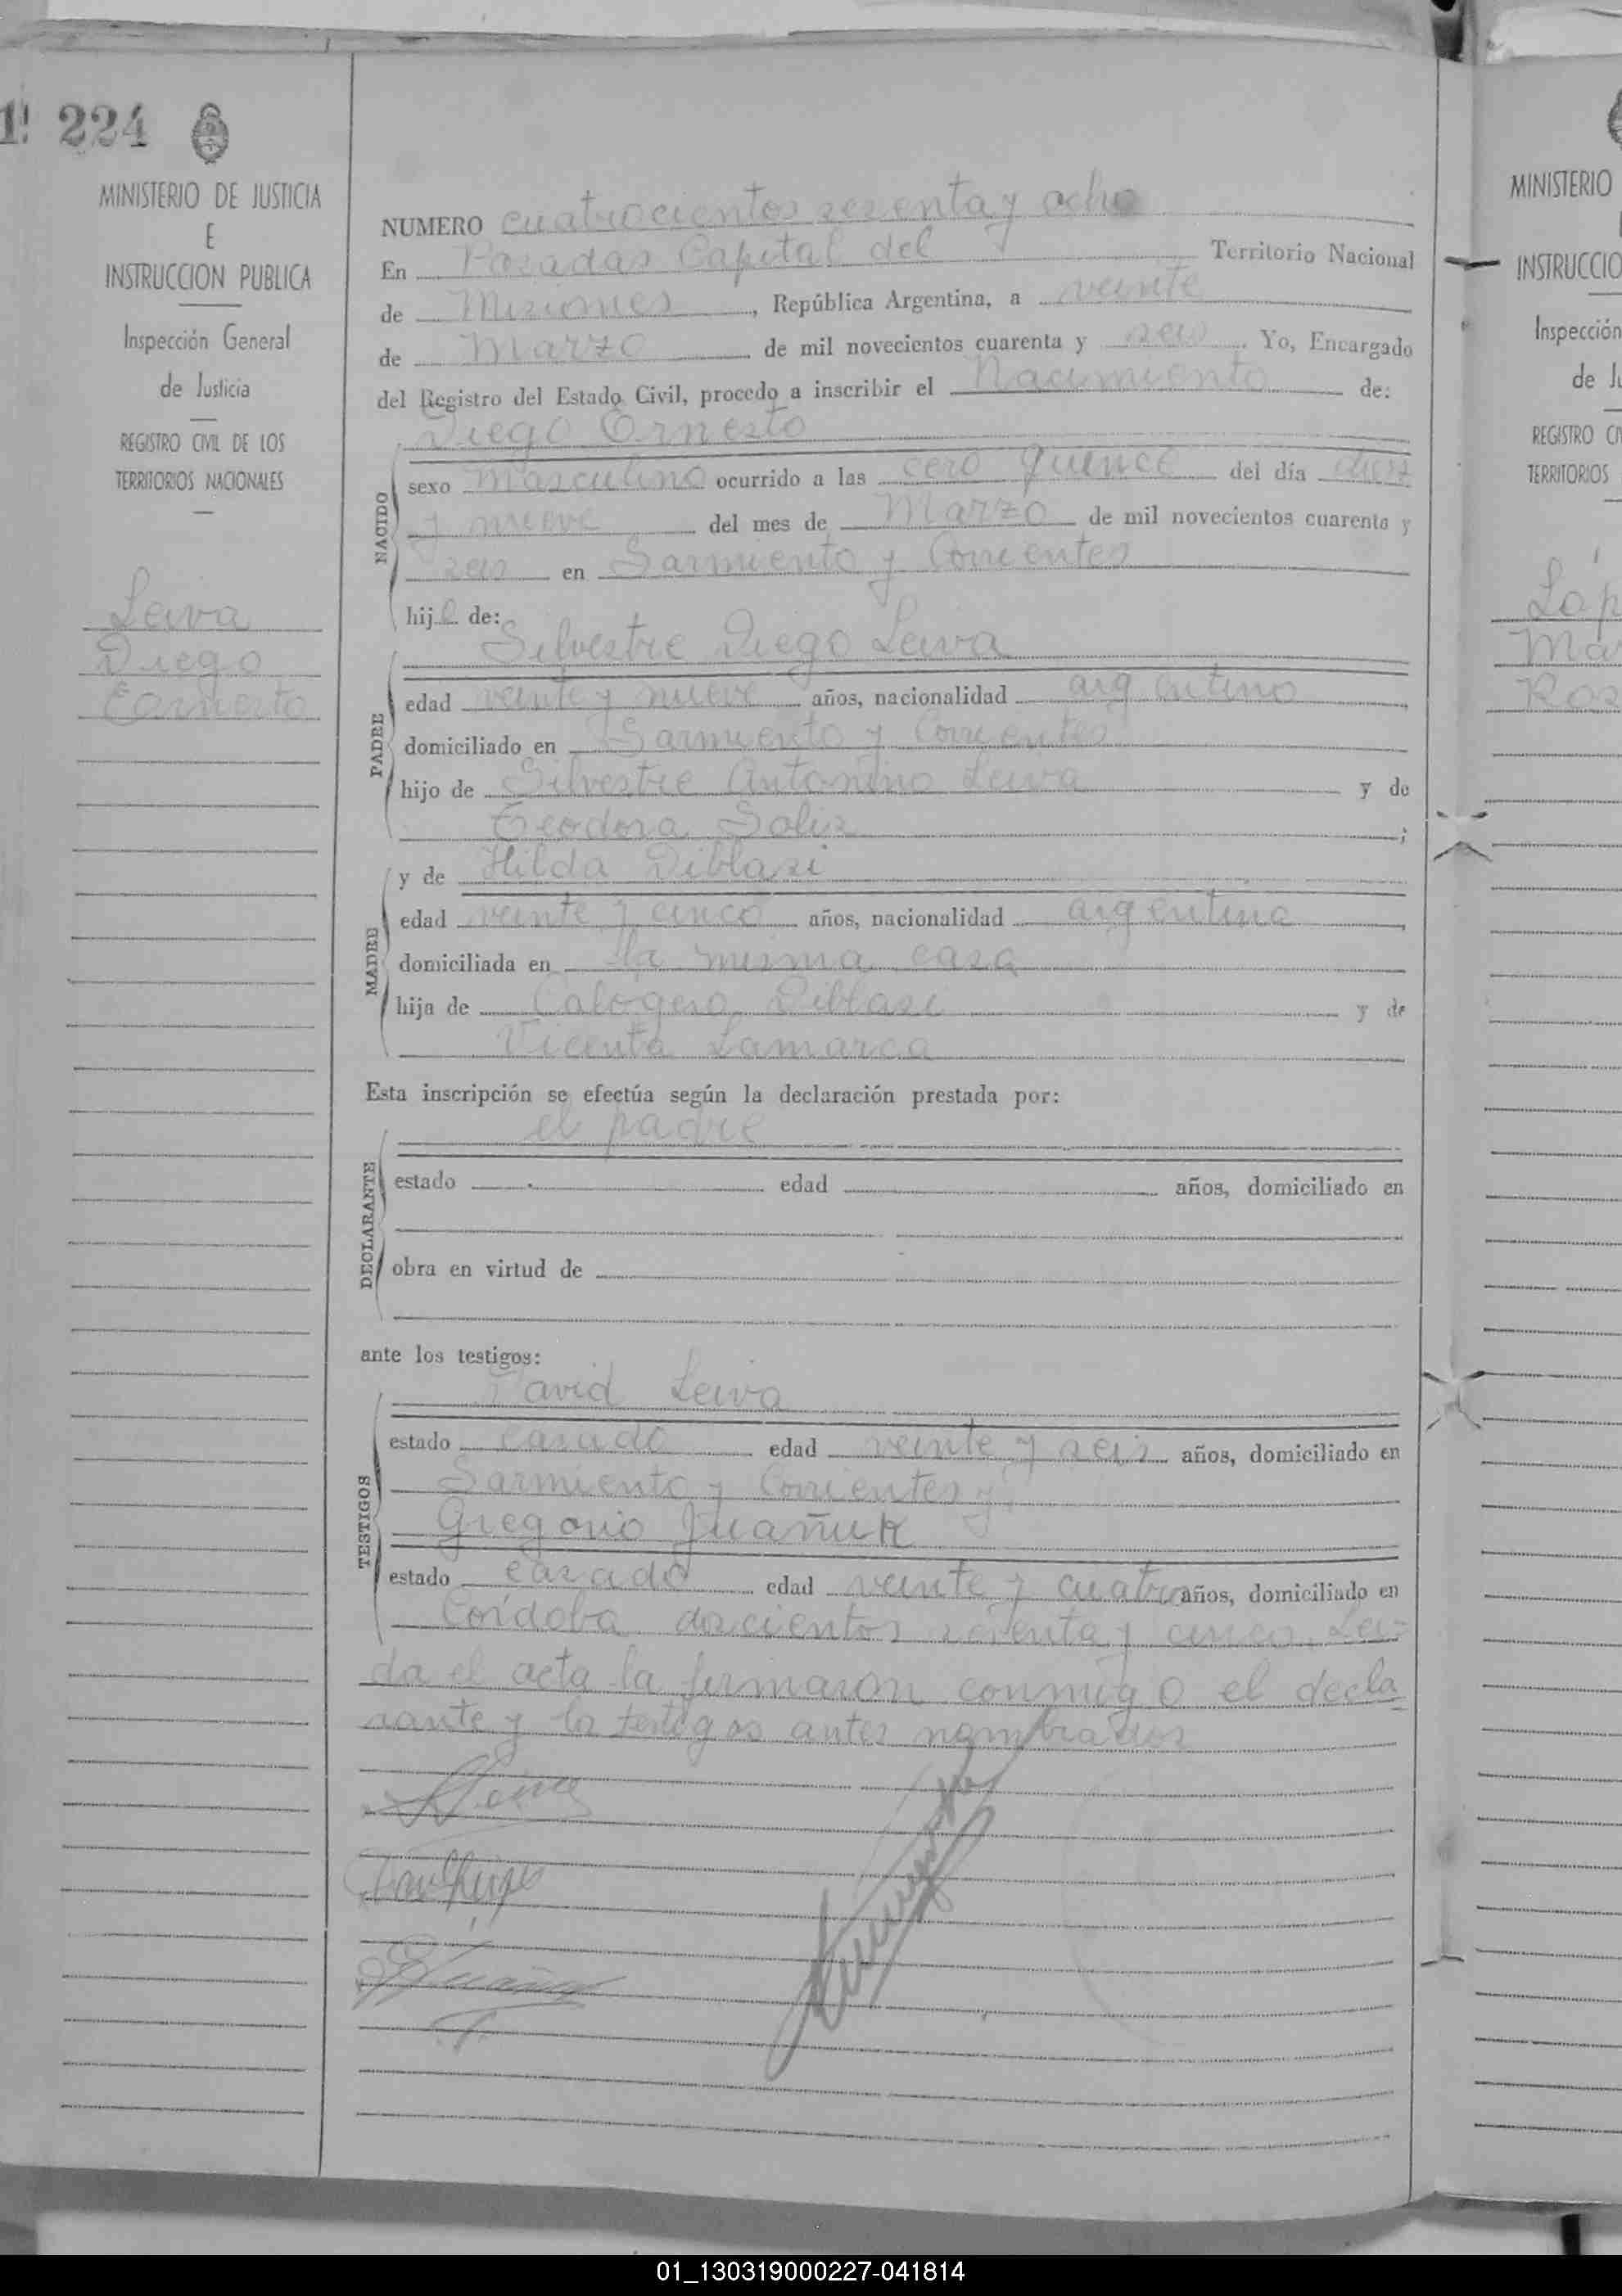 1! 224
MINISTERIO DE JUSTICIA
E
INSTRUCCION PUBLICA
Inspección General
de Justicia
REGISTRO CIVIL DE LOS
TERRITORIOS NACIONALES
Leiva
Diego
Earnesto
NUMERO cuatrocientos sesenta y ocho
En Posadas Capital del Territorio Nacional
de Misiones, República Argentina, a veinte
de Marzo de mil novecientos cuarenta y seis. Yo, Encargado
del Registro del Estado Civil, procedo a inscribir el Nacimiento de:
Diego Ornesto
NACIDO
sexo Masculino ocurrido a las cero quince del día diez
y nueve del mes de Marzo de mil novecientos cuarenta y
seis en Sarmiento y Corrientes
hijo de:
Silvestre Diego Leiva
PADRE
edad veinte y nueve años, nacionalidad argentino
domiciliado en Sarmiento y Corrientes
hijo de Silvestre Antonino Leiva y de
Teodora Solis;
y de Hilda Diblasi
MADRE
edad veinte y cinco años, nacionalidad argentina
domiciliada en la misma casa
hija de Calogero Diblasi y de
Vicenta Lamarca
Esta inscripción se efectúa según la declaración prestada por:
el padre
DECLARANTE
estado edad años, domiciliado en
obra en virtud de
ante los testigos:
David Leiva
TESTIGOS
estado casado edad veinte y seis años, domiciliado en
Sarmiento y Corrientes y
Gregorio Juañuk
estado casado edad veinte y cuatro años, domiciliado en
Córdoba doscientos setenta y cinco. Lei-
da el acta la firmaron conmigo el decla
rante y los testigos antes nombrados
MINISTERIO
INSTRUCCIO
Inspección
de Ju
REGISTRO CIV
TERRITORIOS
Lop
Ma
Ros
01_130319000227-041814